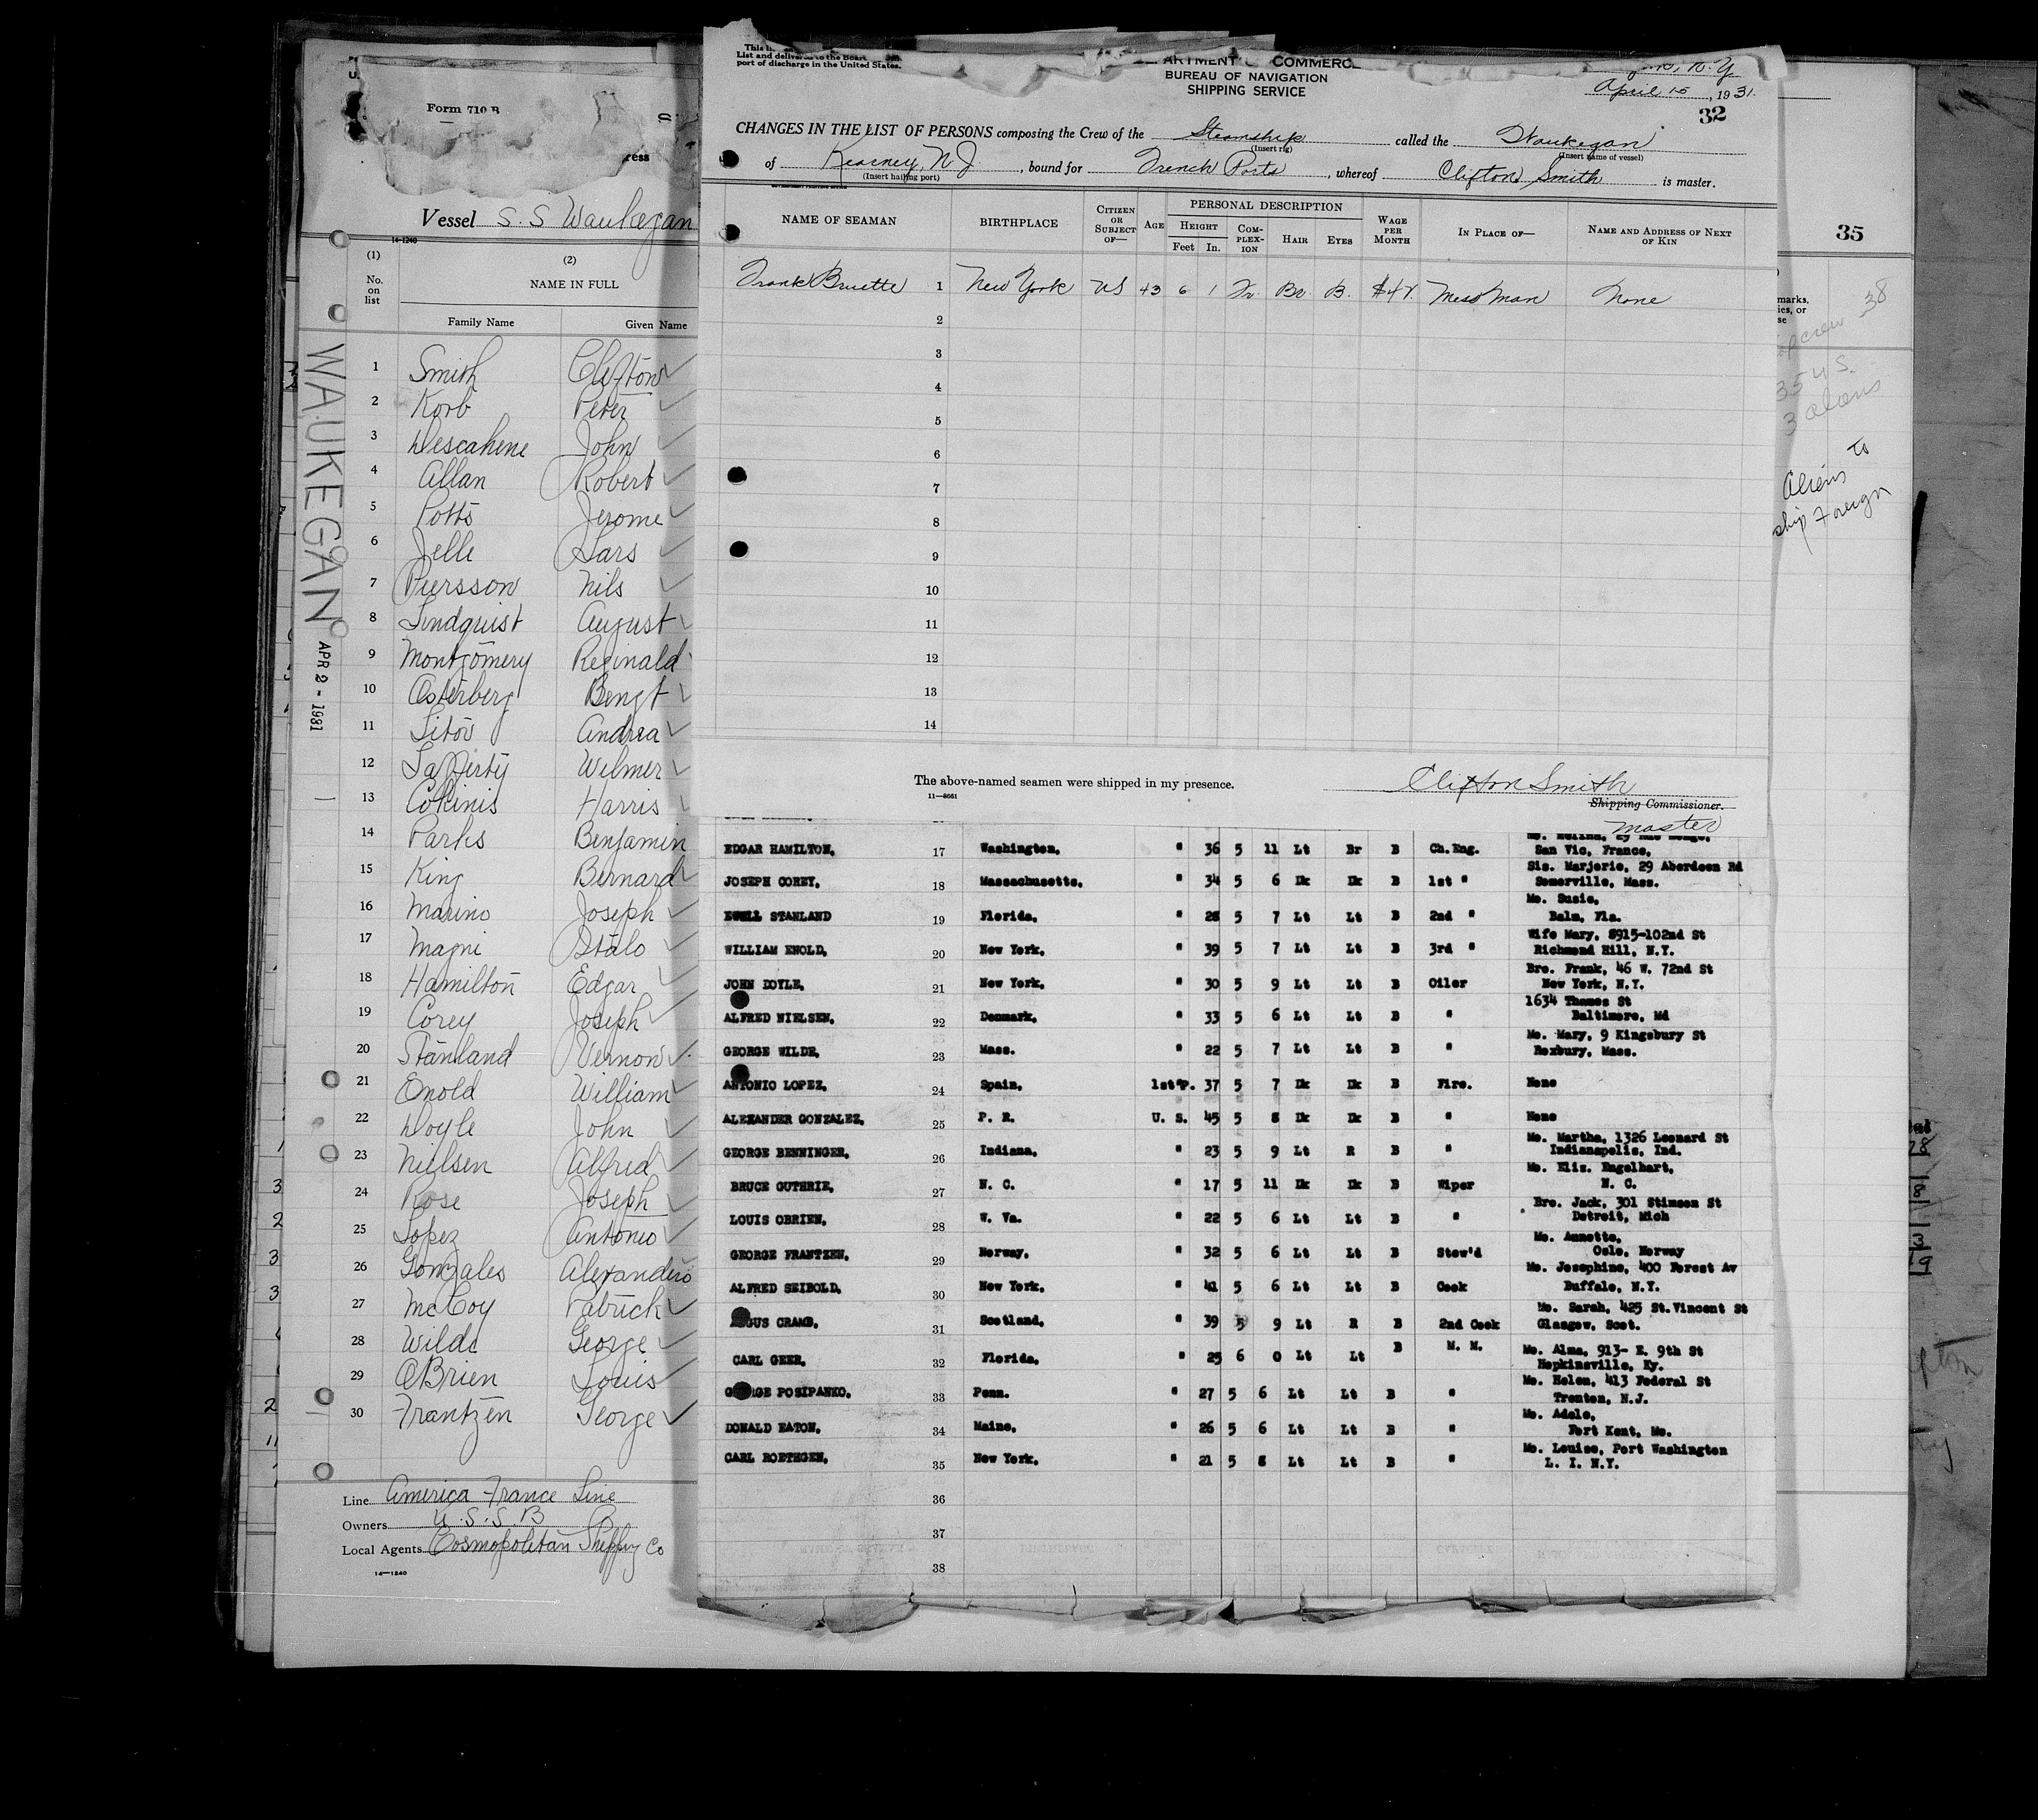 Form 710 B
ress
Vessel S. S Waukegan
14-1240
(1)
(2)
No. on list
NAME IN FULL
Family Name Given Name
1 Smith Clifton
2 Korb Peter
3 Descahene John
4 Allan Robert
5 Potts Jerome
6 Jelle Lars
7 Piersson Nils
8 Lindquist August
9 Montgomery Reginald
10 Osterberg Bengt
11 Titov Andrea
12 Lafferty Wilmer
13 Cokinis Harris
14 Parks Benjamin
15 King Bernard
16 Marino Joseph
17 Magni Italo
18 Hamilton Edgar
19 Corey Joseph
20 Stanland Vernon
21 Enold William
22 Doyle John
23 Nielsen Alfred
24 Rose Joseph
25 Lopez Antonio
26 Gonzales Alexandero
27 McCoy Patrick
28 Wilde George
29 OBrien Louis
30 Frantzen George
Line America France Line
Owners U. S. S. B
Local Agents Cosmopolitan Shipping Co
14-1240
WAUKEGAN
APR 2 - 1931
List and delivered to the Board
port of discharge in the United States.
ARTMENT COMMERC
BUREAU OF NAVIGATION
SHIPPING SERVICE
N. Y
April 15, 1931.
32
CHANGES IN THE LIST OF PERSONS composing the Crew of the Steamship called the Waukegan
(Insert rig) (Insert name of vessel)
of Kearney, N. J. , bound for French Ports , whereof Clifton Smith is master.
(Insert hailing port)
NAME OF SEAMAN BIRTHPLACE CITIZEN OR SUBJECT OF— AGE PERSONAL DESCRIPTION HEIGHT Feet In. COMPLEXION HAIR EYES WAGE PER MONTH IN PLACE OF— NAME AND ADDRESS OF NEXT OF KIN
Frank Bruette 1 New York US 43 6 1 Br. B. Mess Man None
2
3
4
5
6
7
8
9
10
11
12
13
14
The above-named seamen were shipped in my presence. Clifton Smith
11-8661
Shipping Commissioner.
Master
EDGAR HAMILTON, 17 Washington, " 36 5 11 Lt Br B Ch.Eng. San Vic, France,
JOSEPH COREY, 18 Massachusetts, " 34 5 6 Dk Dk B 1st " Sis. Marjorie, 29 Aberdeen Rd Somerville, Mass.
STANLAND 19 Florida, " 5 7 Lt Lt B 2nd " Mo. Susie, Balm, Fla.
WILLIAM ENOLD, 20 New York, " 39 5 7 Lt Lt B 3rd " Wife Mary, 8915-102nd St Richmond Hill, N.Y.
JOHN DOYLE, 21 New York, " 30 5 9 Lt Lt B Oiler Bro. Frank, 46 W. 72nd St New York, N.Y.
ALFRED NIELSEN, 22 Denmark, " 33 5 6 Lt Lt B " 1634 Thames St Baltimore, Md
GEORGE WILDE, 23 Mass. " 22 5 7 Lt Lt B " Mo. Mary, 9 Kingsbury St Roxbury, Mass.
ANTONIO LOPEZ, 24 Spain, 1st P. 37 5 7 Dk Dk B Fire. None
ALEXANDER GONZALEZ, 25 P. R. U. S. 45 5 8 Dk Dk B " None
GEORGE BENNINGER, 26 Indiana, " 23 5 9 Lt R B " Mo. Martha, 1326 Leonard St Indianapolis, Ind.
BRUCE GUTHRIE, 27 N. C. " 17 5 11 Dk Dk B Wiper Mo. Eliz. Engelhart, N. C.
LOUIS OBRIEN, 28 W. Va. " 22 5 6 Lt Lt B " Bro. Jack, 301 Stimson St Detroit, Mich
GEORGE FRANTZEN, 29 Norway, " 32 5 6 Lt Lt B Stew'd Mo. Annette, Oslo, Norway
ALFRED SEIBOLD, 30 New York, " 41 5 6 Lt Lt B Cook Mo. Josephine, 400 Forest Av Buffalo, N.Y.
ANGUS CRAMB, 31 Scotland, " 39 5 9 Lt R B 2nd Cook Mo. Sarah, 425 St.Vincent St Glasgow, Scot.
CARL GEER, 32 Florida, " 25 6 0 Lt Lt B M. M. Mo. Alma, 913- E. 9th St Hopkinsville, Ky.
GEORGE POSIPANKO, 33 Penn. " 27 5 6 Lt Lt B " Mo. Helen, 413 Federal St Trenton, N.J.
DONALD EATON, 34 Maine, " 26 5 6 Lt Lt B " Mo. Adele, Fort Kent, Me.
CARL ROETHGEN, 35 New York, " 21 5 8 Lt Lt B " Mo. Louise, Port Washington L. I. N.Y.
36
37
38
35
marks,
ies, or
se
38
crew
35 U S.
3 aliens
Aliens to
ship Foreign